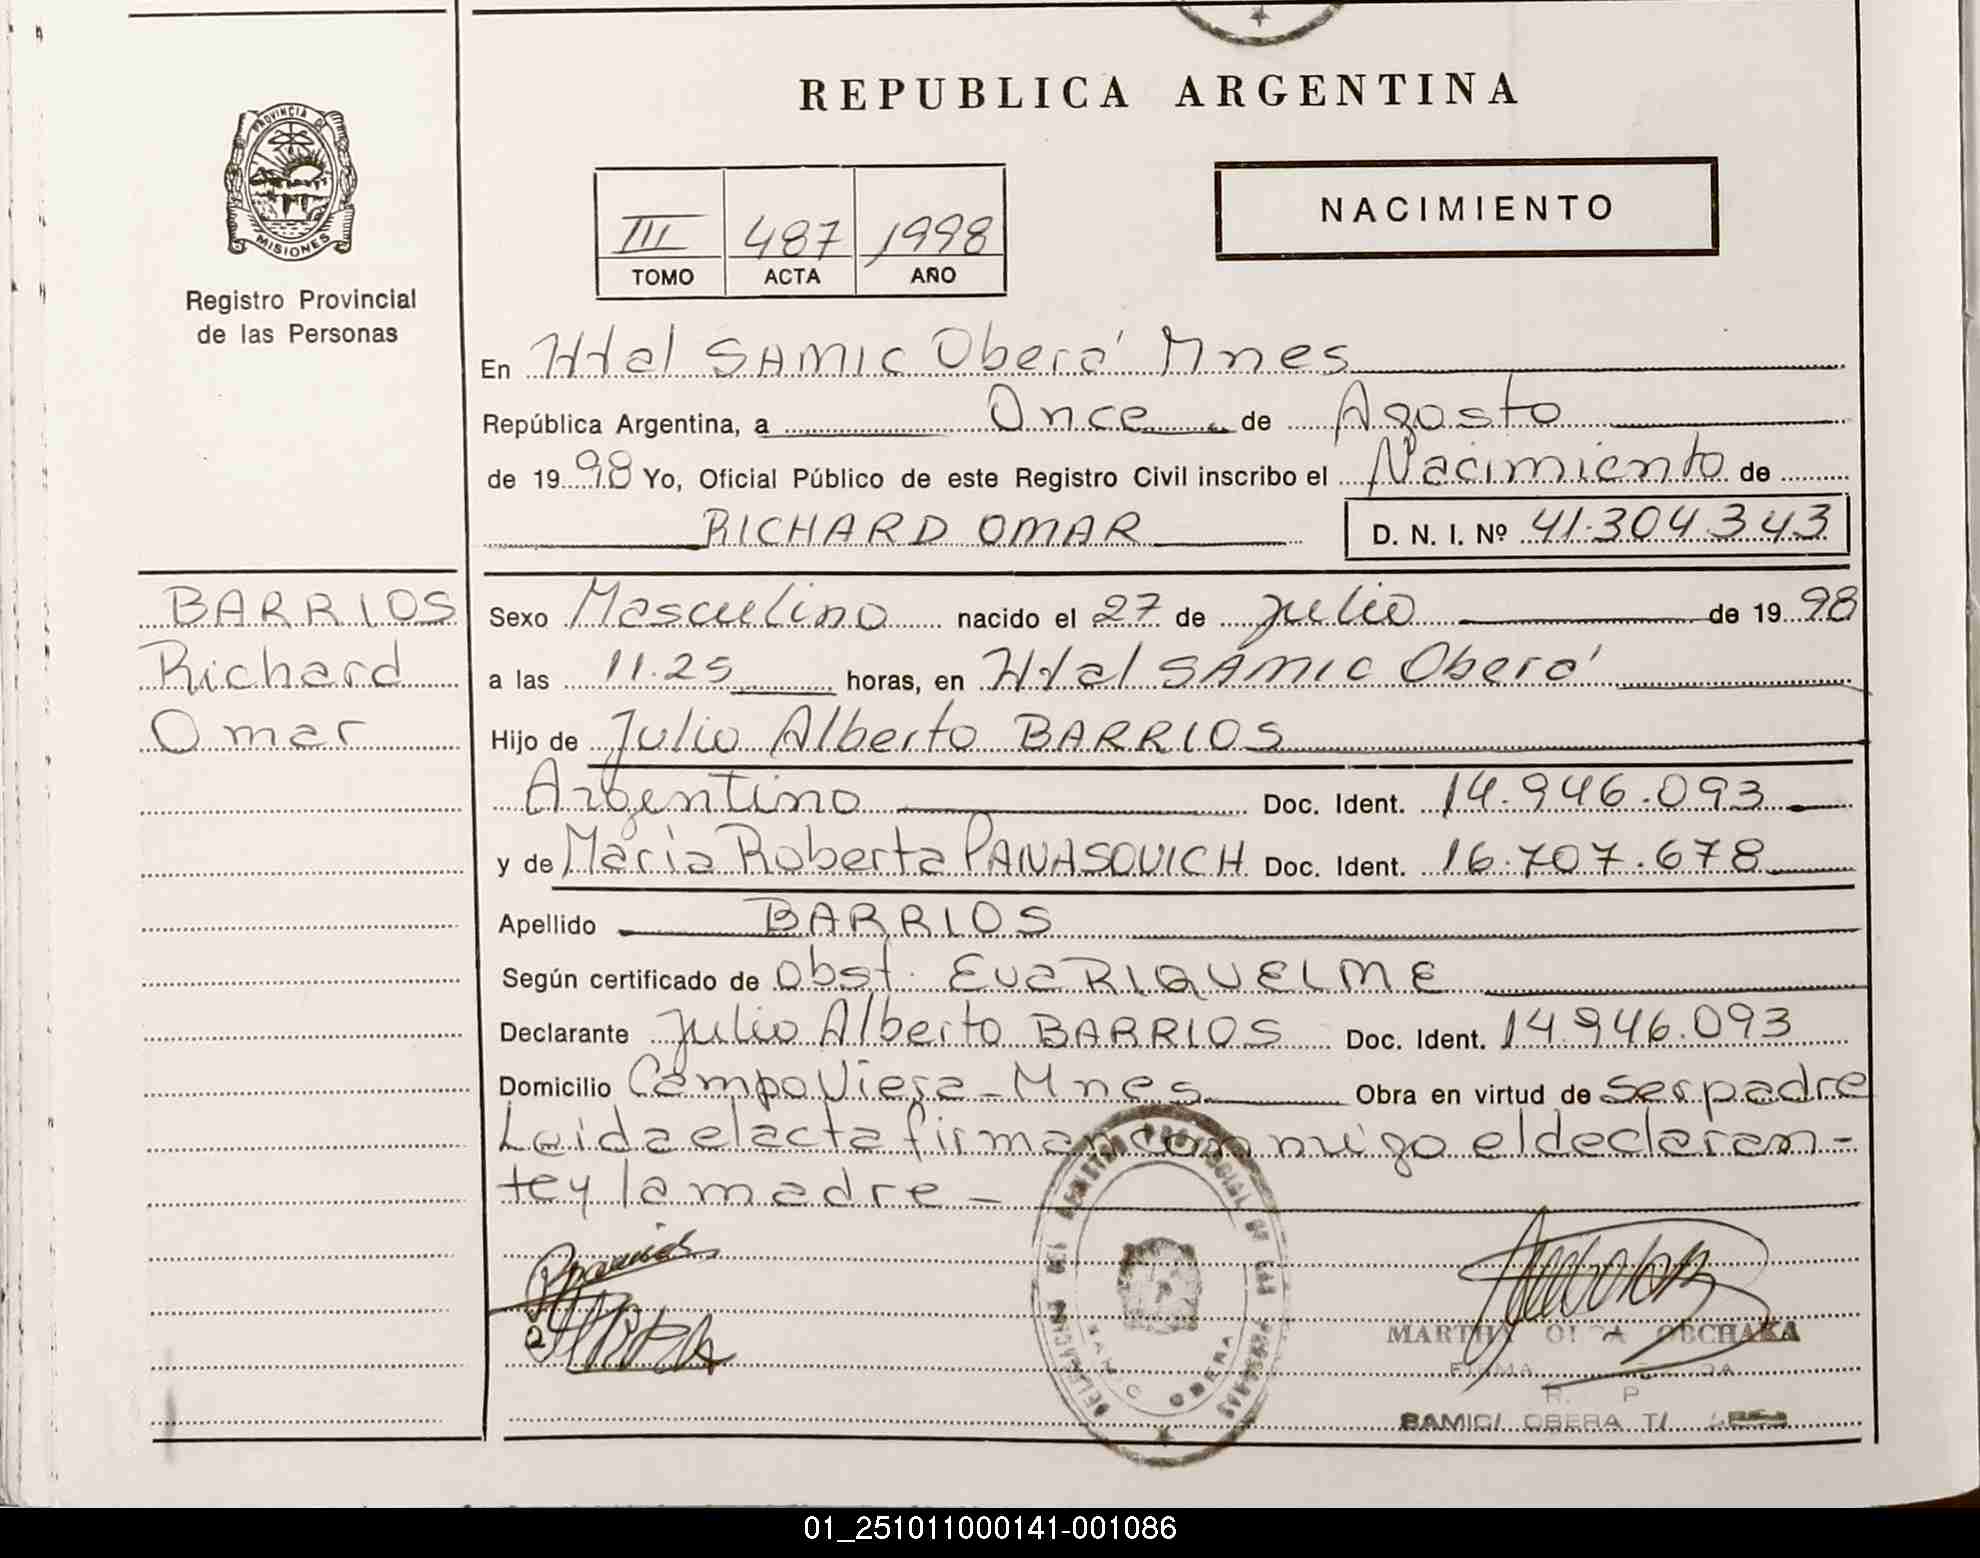 REPUBLICA ARGENTINA
PROVINCIA DE
MISIONES
Registro Provincial
de las Personas
III 487 1998
TOMO ACTA AÑO
NACIMIENTO
En Htal SAMIC Oberá Mnes
República Argentina, a Once de Agosto
de 1998 Yo, Oficial Público de este Registro Civil inscribo el Nacimiento de
RICHARD OMAR D. N. I. Nº 41.304.343
BARRIOS
Richard
Omar
Sexo Masculino nacido el 27 de julio de 1998
a las 11.25 horas, en Htal SAMIC Oberá
Hijo de Julio Alberto BARRIOS
Argentino Doc. Ident. 14.946.093
y de Maria Roberta PANASOUICH Doc. Ident. 16.707.678
Apellido BARRIOS
Según certificado de Obst. Eva RIQUELME
Declarante Julio Alberto BARRIOS Doc. Ident. 14.946.093
Domicilio Campo Viera - Mnes Obra en virtud de ser padre
Leida el acta firman con migo el declaran-
te y la madre -
DELEGACION DEL REGISTRO PROVINCIAL DE LAS PERSONAS
OBERA
MARTHA OLGA OBCHAKA
FIRMA
R. P
SAMIC/ OBERA T/
01_251011000141-001086